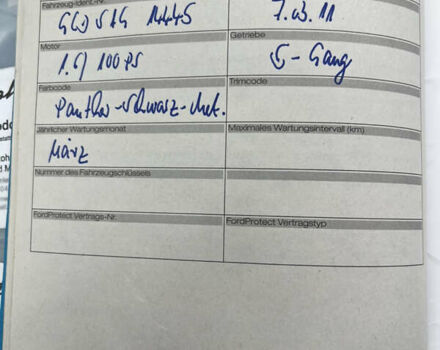 Fahrzeug-Ident.-Nr.
7.03.11
Motor
Getriebe
100 PS
5-Gang
Farbcode
Trimcode
Panther-schwarz-Met.
Jährlicher Wartungsmonat
Maximales Wartungsintervall (km)
März
Nummer des Fahrzeugschlüssels
FordProtect Vertrags-Nr.
FordProtect Vertragstyp